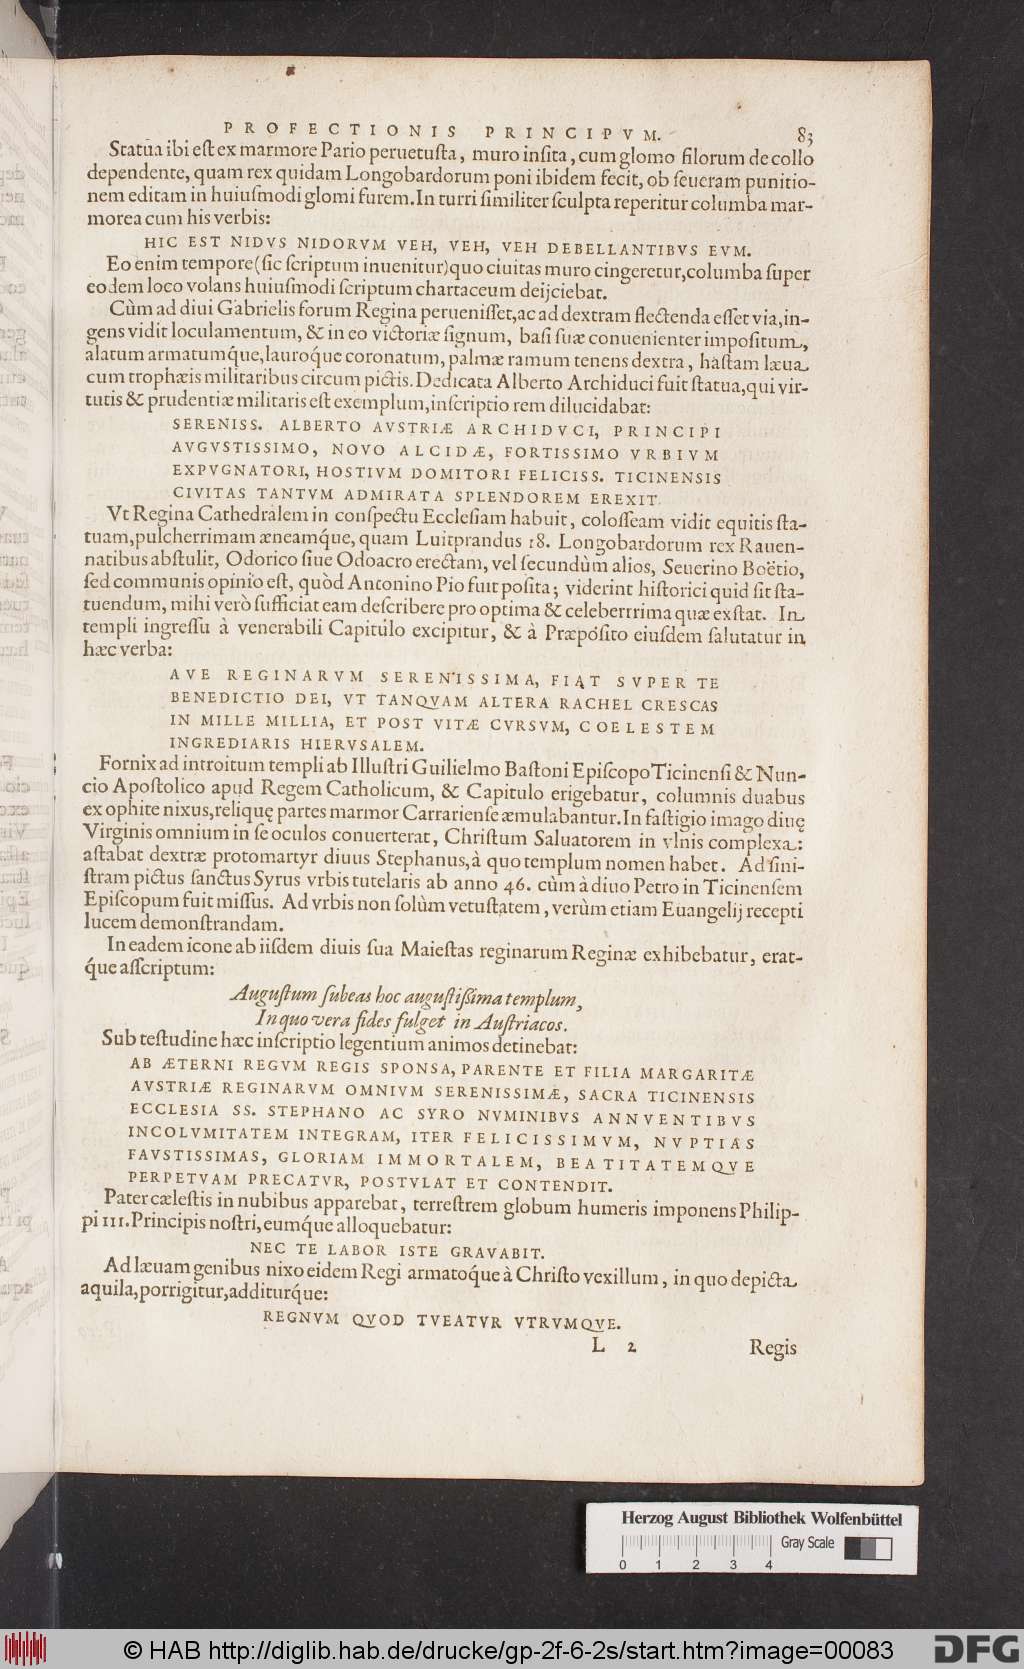 PROFECTIONIS PRINCIPVM. 83
Statua ibi eſt ex marmore Pario peruetuſta, muro inſita, cum glomo filorum de collo
dependente, quam rex quidam Longobardorum poni ibidem fecit, ob ſeueram punitio-
nem editam in huiuſmodi glomi furem. In turri ſimiliter ſculpta reperitur columba mar-
morea cum his verbis:
HIC EST NIDVS NIDORVM VEH, VEH, VEH DEBELLANTIBVS EVM.
Eo enim tempore (ſic ſcriptum inuenitur) quo ciuitas muro cingeretur, columba ſuper
eodem loco volans huiuſmodi ſcriptum chartaceum deijciebat.
Cùm ad diui Gabrielis forum Regina perueniſſet, ac ad dextram flectenda eſſet via, in-
gens vidit loculamentum, & in eo victoriæ ſignum, baſi ſuæ conuenienter impoſitum,
alatum armatumq́ue, lauroq́ue coronatum, palmæ ramum tenens dextra, haſtam læua
cum trophæis militaribus circum pictis. Dedicata Alberto Archiduci fuit ſtatua, qui vir-
tutis & prudentiæ militaris eſt exemplum, inſcriptio rem dilucidabat:
SERENISS. ALBERTO AVSTRIÆ ARCHIDVCI, PRINCIPI
AVGVSTISSIMO, NOVO ALCIDÆ, FORTISSIMO VRBIVM
EXPVGNATORI, HOSTIVM DOMITORI FELICISS. TICINENSIS
CIVITAS TANTVM ADMIRATA SPLENDOREM EREXIT.
Vt Regina Cathedralem in conſpectu Eccleſiam habuit, coloſſeam vidit equitis ſta-
tuam, pulcherrimam æneamq́ue, quam Luitprandus 18. Longobardorum rex Rauen-
natibus abſtulit, Odorico ſiue Odoacro erectam, vel ſecundùm alios, Seuerino Boëtio,
ſed communis opinio eſt, quòd Antonino Pio fuit poſita; viderint hiſtorici quid ſit ſta-
tuendum, mihi verò ſufficiat eam deſcribere pro optima & celeberrrima quæ exſtat. In
templi ingreſſu à venerabili Capitulo excipitur, & à Præpoſito eiuſdem ſalutatur in
hæc verba:
AVE REGINARVM SERENISSIMA, FIAT SVPER TE
BENEDICTIO DEI, VT TANQVAM ALTERA RACHEL CRESCAS
IN MILLE MILLIA, ET POST VITÆ CVRSVM, COELESTEM
INGREDIARIS HIERVSALEM.
Fornix ad introitum templi ab Illuſtri Guilielmo Baſtoni Epiſcopo Ticinenſi & Nun-
cio Apoſtolico apud Regem Catholicum, & Capitulo erigebatur, columnis duabus
ex ophite nixus, reliquę partes marmor Carrarienſe æmulabantur. In faſtigio imago diuę
Virginis omnium in ſe oculos conuerterat, Chriſtum Saluatorem in vlnis complexa:
aſtabat dextræ protomartyr diuus Stephanus, à quo templum nomen habet. Ad ſini-
ſtram pictus ſanctus Syrus vrbis tutelaris ab anno 46. cùm à diuo Petro in Ticinenſem
Epiſcopum fuit miſſus. Ad vrbis non ſolùm vetuſtatem, verùm etiam Euangelij recepti
lucem demonſtrandam.
In eadem icone ab iiſdem diuis ſua Maieſtas reginarum Reginæ exhibebatur, erat-
q́ue aſſcriptum:
Auguſtum ſubeas hoc auguſtiſſima templum,
In quo vera fides fulget in Auſtriacos.
Sub teſtudine hæc inſcriptio legentium animos detinebat:
AB ÆTERNI REGVM REGIS SPONSA, PARENTE ET FILIA MARGARITÆ
AVSTRIÆ REGINARVM OMNIVM SERENISSIMÆ, SACRA TICINENSIS
ECCLESIA SS. STEPHANO AC SYRO NVMINIBVS ANNVENTIBVS
INCOLVMITATEM INTEGRAM, ITER FELICISSIMVM, NVPTIAS
FAVSTISSIMAS, GLORIAM IMMORTALEM, BEATITATEMQVE
PERPETVAM PRECATVR, POSTVLAT ET CONTENDIT.
Pater cæleſtis in nubibus apparebat, terreſtrem globum humeris imponens Philip-
pi III. Principis noſtri, eumq́ue alloquebatur:
NEC TE LABOR ISTE GRAVABIT.
Ad læuam genibus nixo eidem Regi armatoq́ue à Chriſto vexillum, in quo depicta
aquila, porrigitur, additurq́ue:
REGNVM QVOD TVEATVR VTRVMQVE.
L 2 Regis
Herzog August Bibliothek Wolfenbüttel
Gray Scale
0 1 2 3 4
© HAB http://diglib.hab.de/drucke/gp-2f-6-2s/start.htm?image=00083
DFG